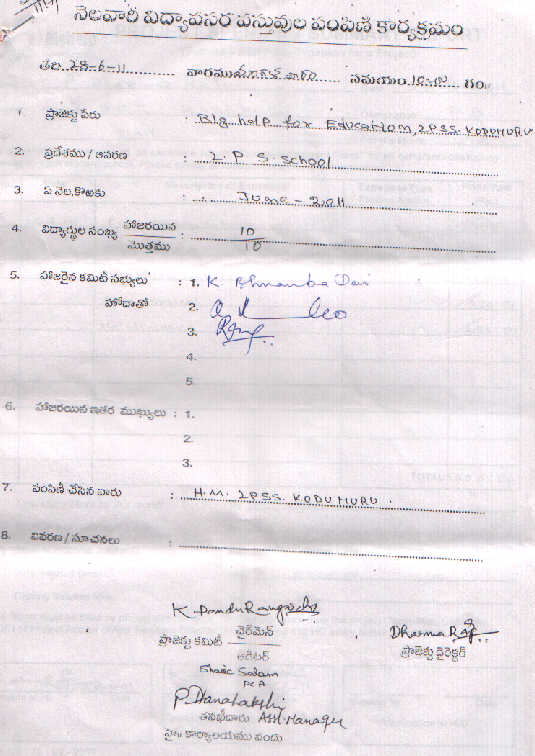 నెలవారి విద్యావసర వస్తువుల పంపిణి కార్యక్రమం
తేది. 25-6-11 వారము సమయం. గం.
1. ప్రాజెక్టు పేరు : Big help for Education, 2PSS. KODUMURU
2. ప్రదేశము / ఆవరణ : L. P. S. School
3. ఏ నెల, కొఱకు : June - 2011
4. విద్యార్థుల సంఖ్య హాజరయిన : 10
మొత్తము 10
5. హాజరైన కమిటీ సభ్యులు : 1. K
హోదాతో 2.
3.
4.
5.
6. హాజరయిన ఇతర ముఖ్యులు : 1.
2.
3.
7. పంపిణి చేసిన వారు : H.M. 2PSS. KODUMURU.
8. వివరణ / సూచనలు :
K PanduRanga
ప్రాజెక్టు కమిటీ ఛైర్మెన్
Dharma
ప్రాజెక్టు డైరెక్టర్
ఆడిటర్
P. Dhanalakshmi
తనిఖీదారు Asst. Manager
హెడ్ కార్యాలయము నందు